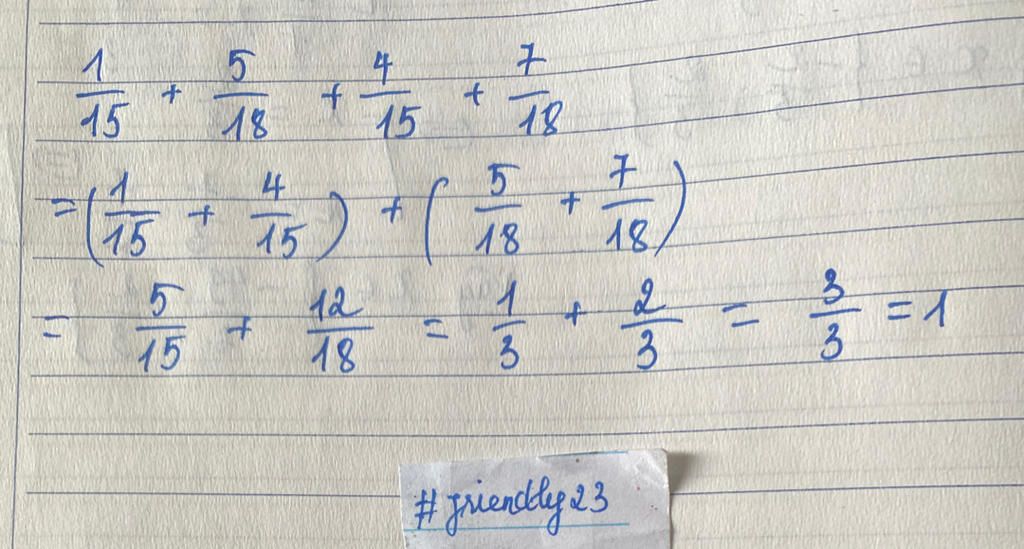 1/15 + 5/18 + 4/15 + 7/18
= (1/15 + 4/15) + (5/18 + 7/18)
= 5/15 + 12/18 = 1/3 + 2/3 = 3/3 = 1
#friendly23